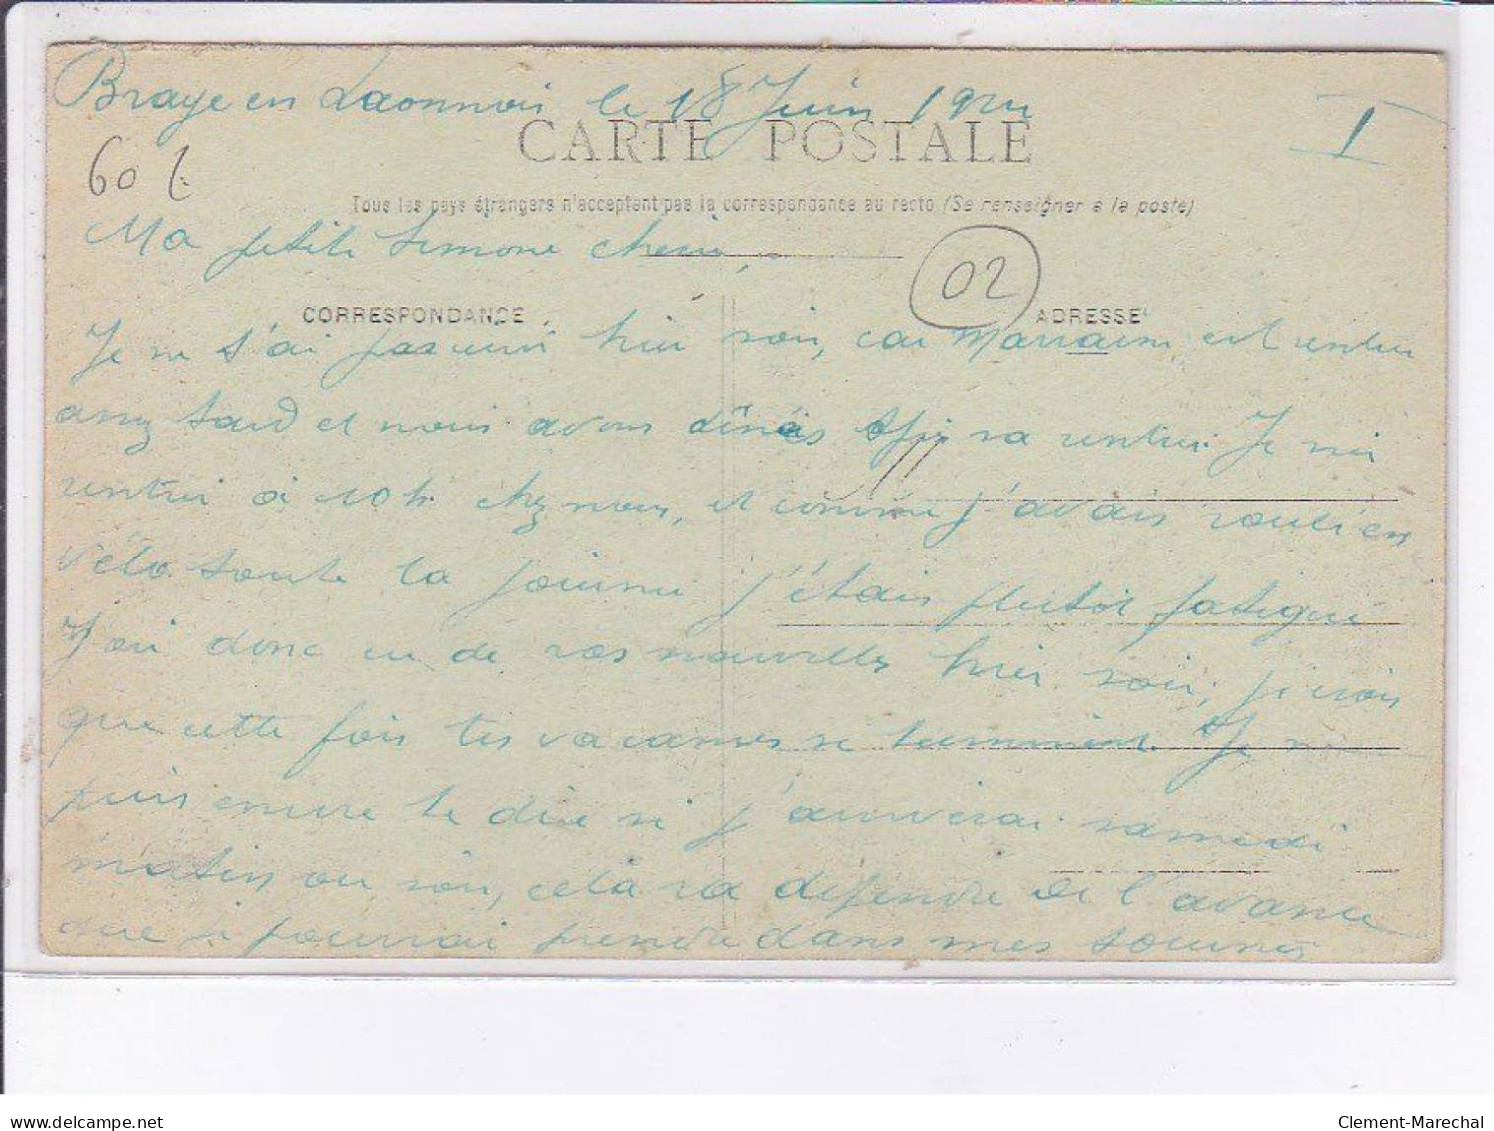 Braye en Laonnois le 18 Juin 19
I
CARTE POSTALE
60 f
Tous les pays étrangers n'acceptent pas la correspondance au recto (Se renseigner à la poste)
Ma petite Simone chérie,
02
CORRESPONDANCE
ADRESSE
Je ne t'ai pas écrit hier soir, car Marraine est rentrée
assez tard et nous avons dînés sa rentrée. Je suis
rentré à 10h chez nous, et comme j'avais roulé en
vélo toute la journée j'étais plutôt fatigué
J'ai donc eu de vos nouvelles hier soir, je crois
que cette fois tes vacances se terminent. Je ne
puis encore te dire si j'arriverai samedi
matin ou soir, cela va dépendre de l'avance
que je pourrai prendre dans mes tournées
delcampe.net
Clement-Marechal